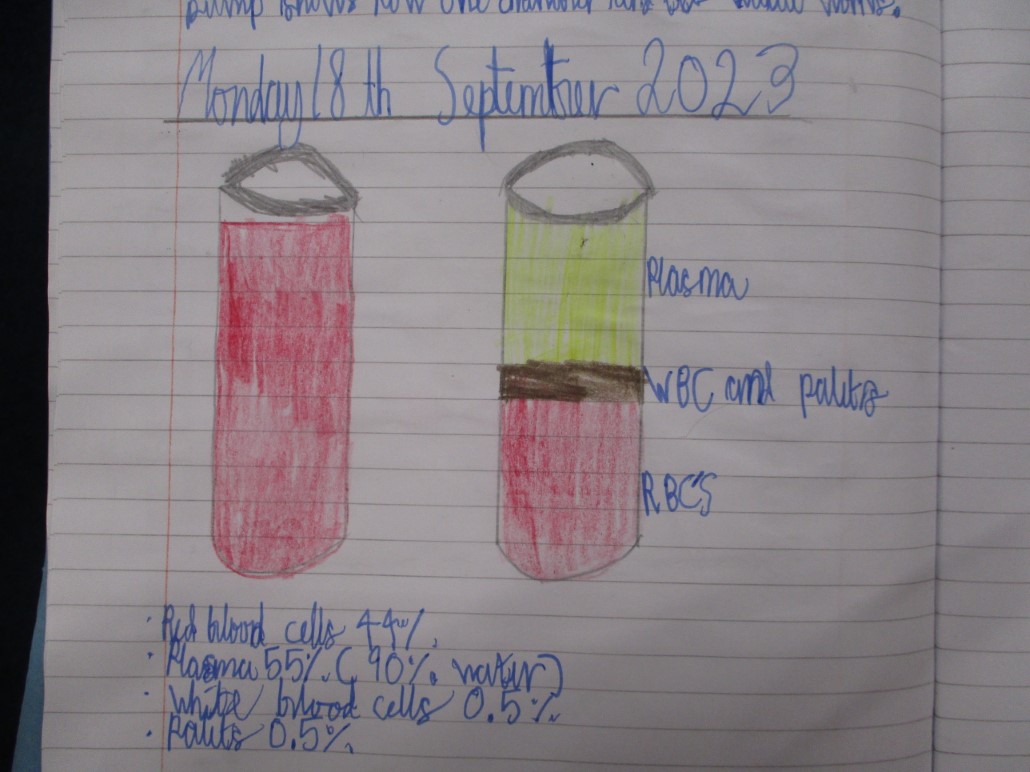 pump shows how one chamber
Monday 18th September 2023
Plasma
WBC and palits
RBC'S
· Red blood cells 44%.
· Plasma 55%. (90%. water)
· White blood cells 0.5%.
· Palits 0.5%.